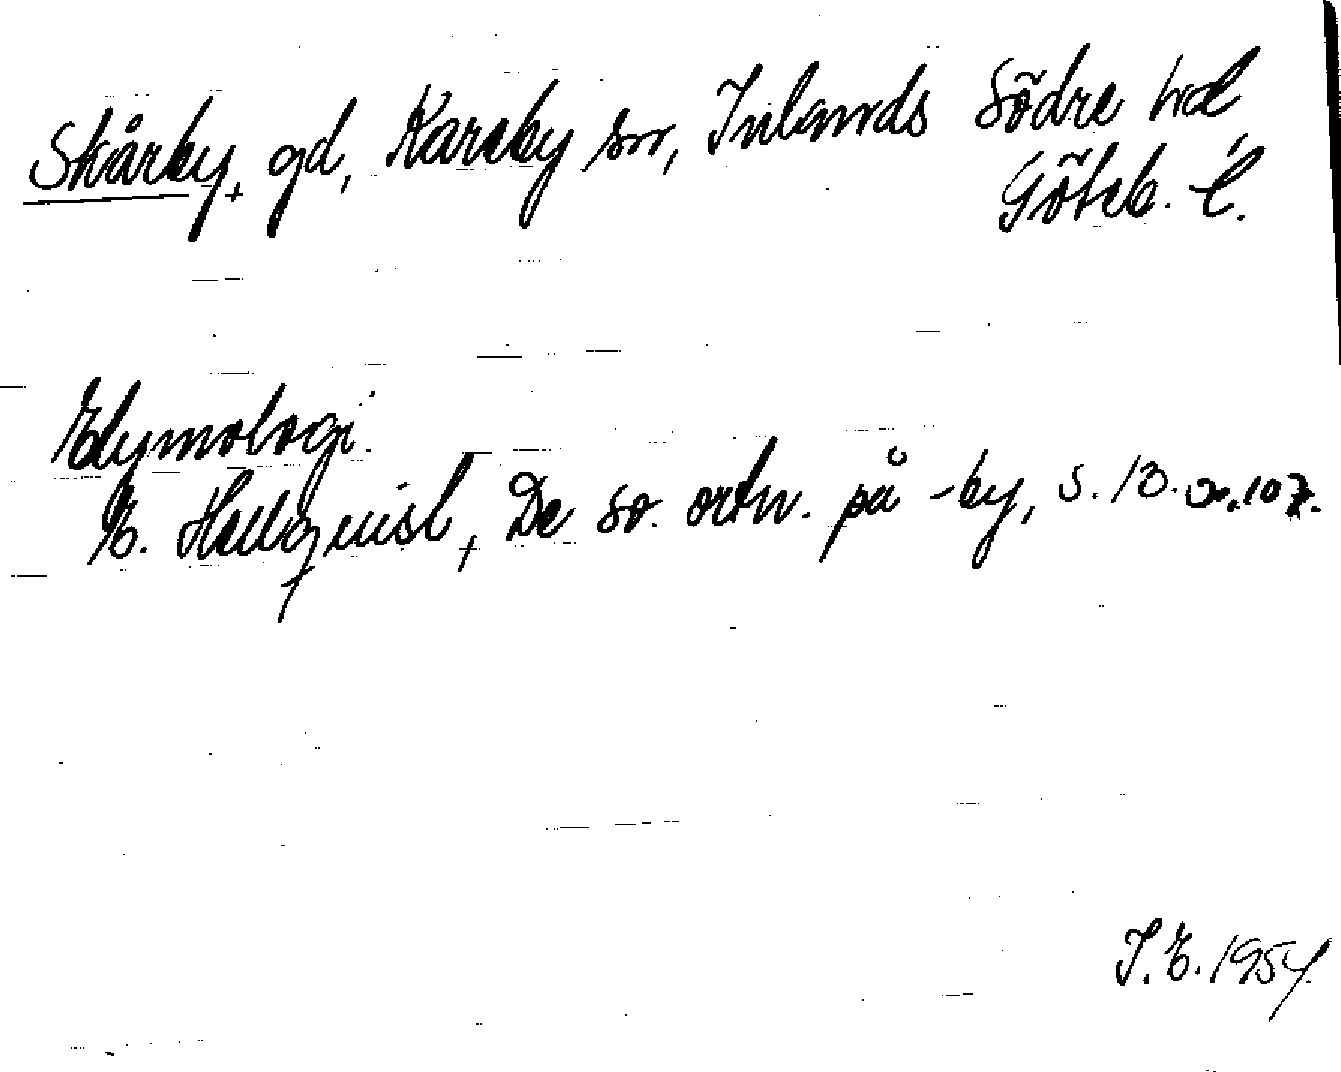 Skårby, gd, Kareby sn, Inlands Södre hd,
Göteb. l.
Etymologi.
E. Hellquist, De sv. ortn. på -by, s. 13. o. 107.
I. E. 1954